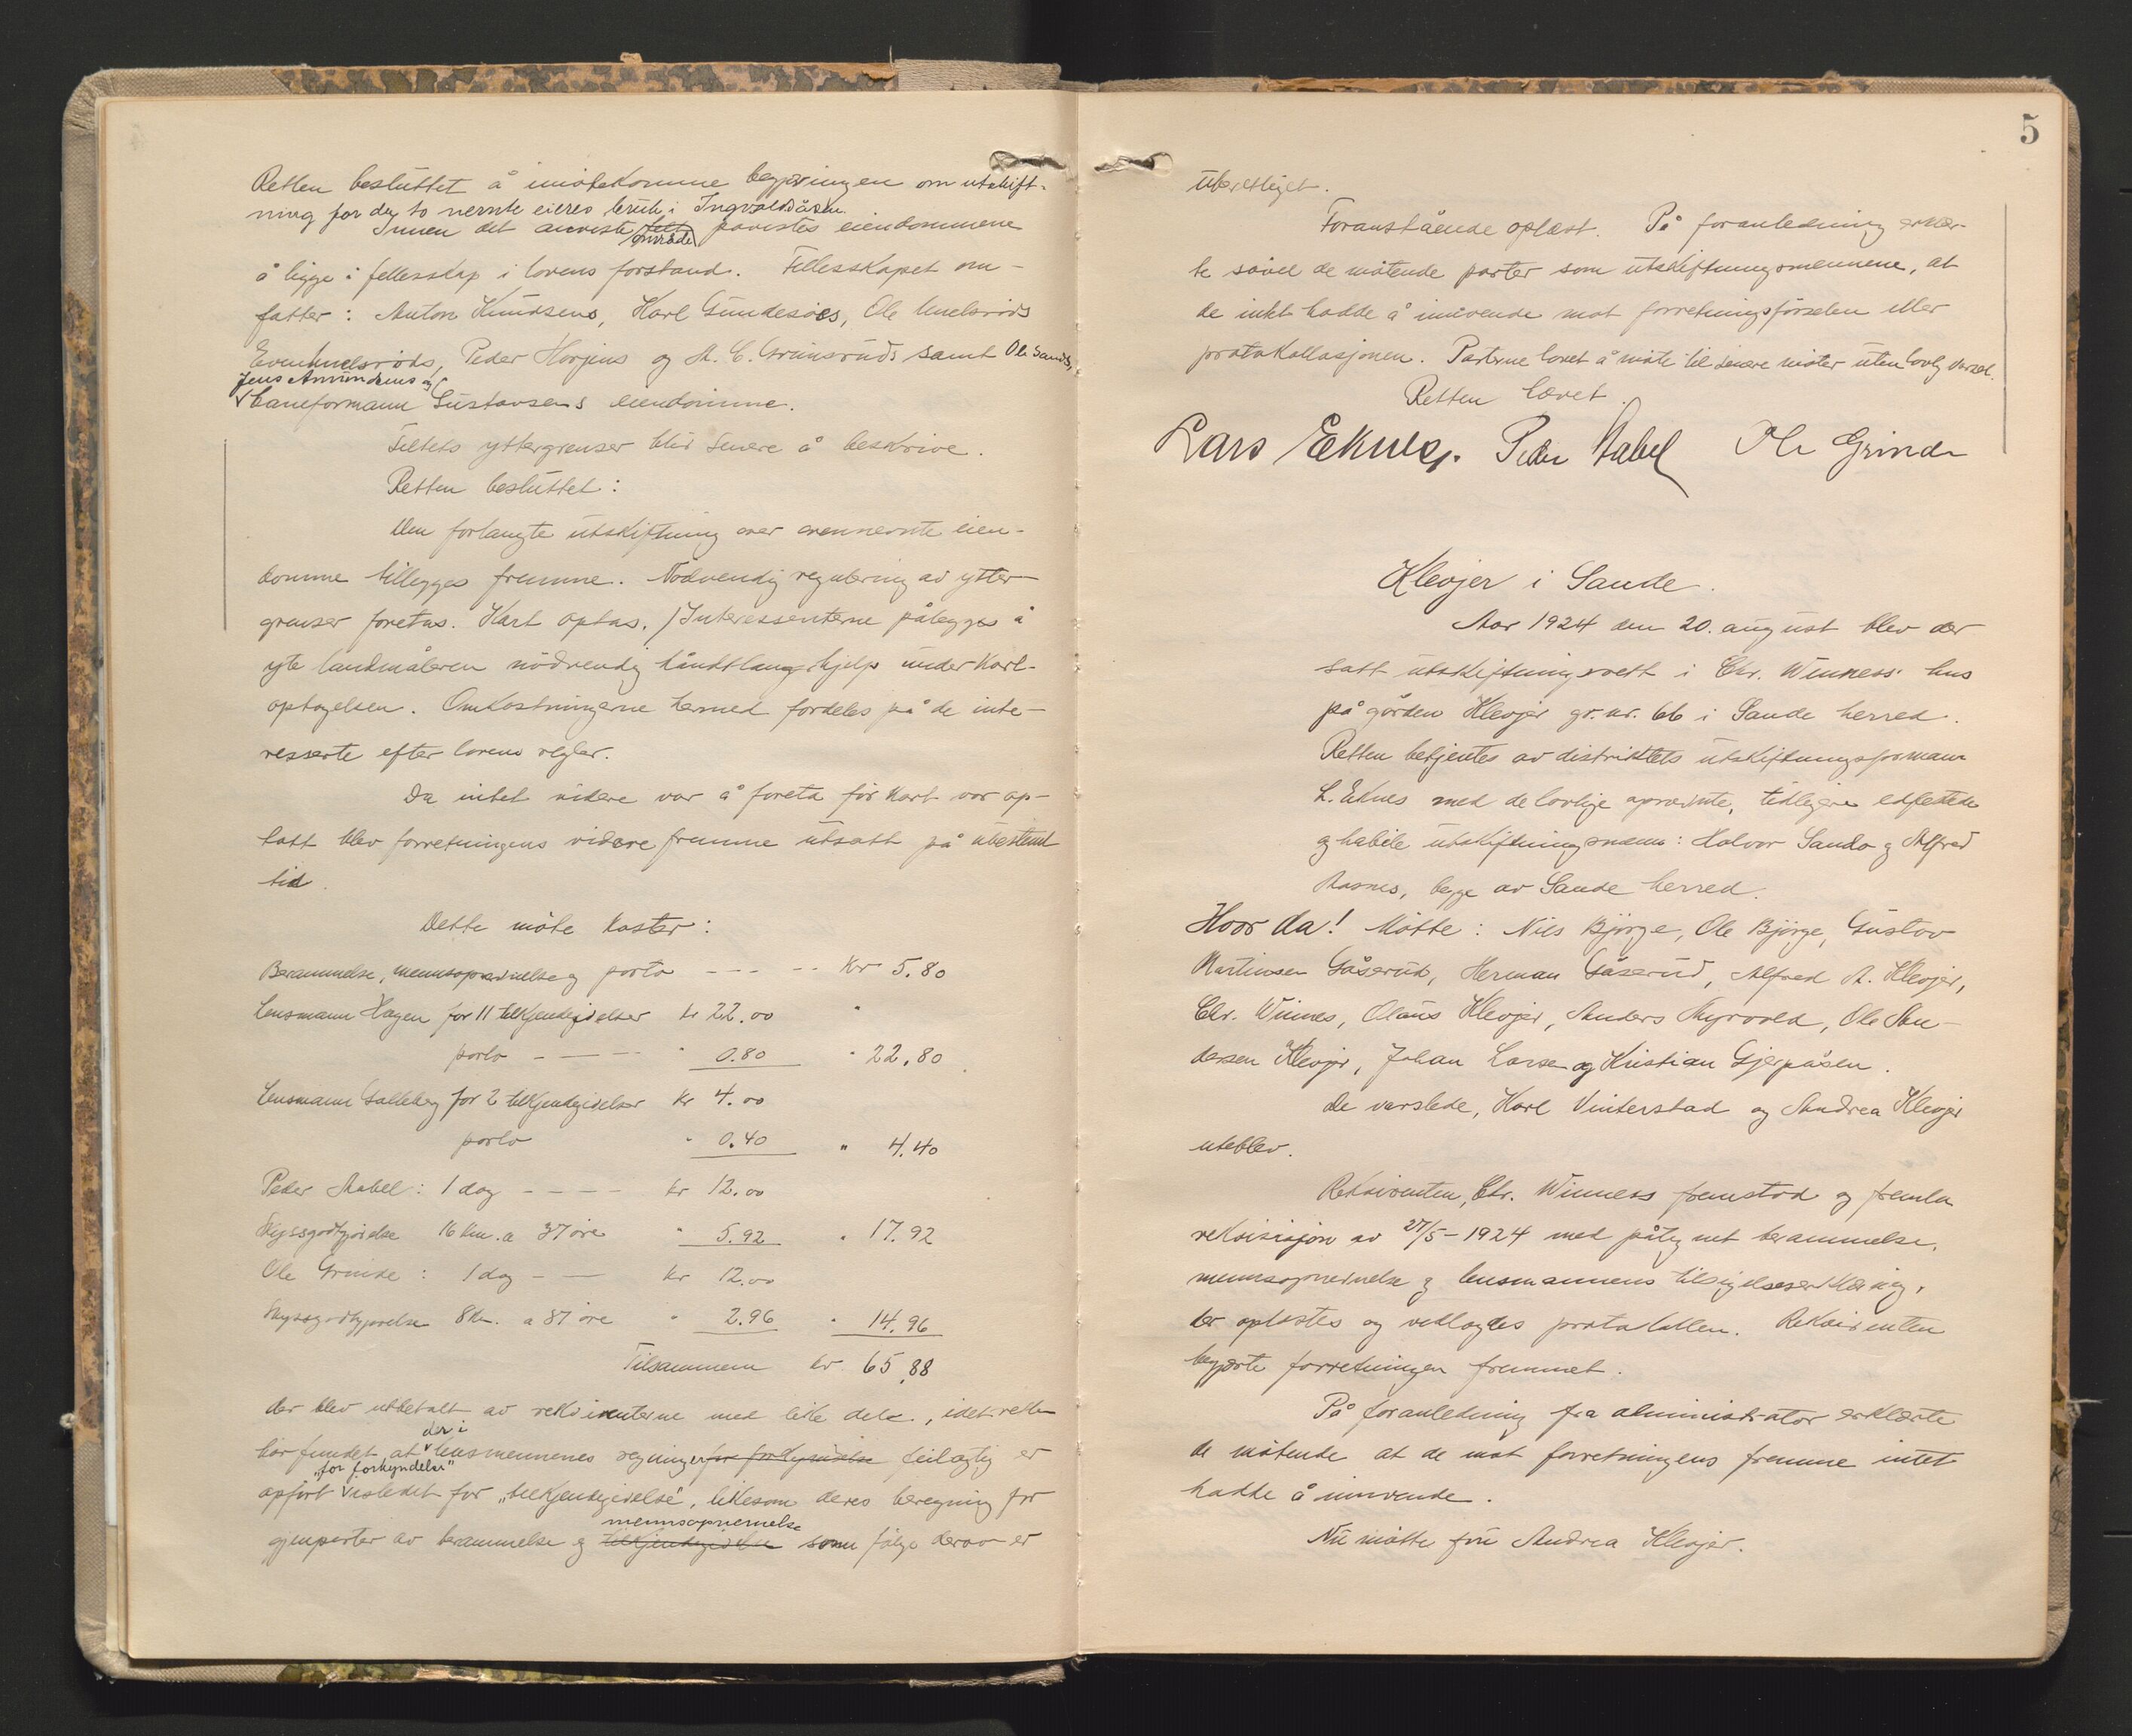 Retten besluttet å imøtekomme begjæringen om utskift-
ning for de to nevnte eieres bruk i Ingvaldsåsen.
Innen det anviste område påvistes eiendommene
å ligge i fellesskap i lovens forstand. Fellesskapet om-
fatter: Anton Knudsens, Karl Gundesøes, Ole Unelsrøds
Even Unelsrøds, Peder Horjens og A. C. Grimsruds samt Ole Sands,
Jens Amundsens og
baneformann Gustavsens eiendomme.
Feltets yttergrenser blir senere å beskrive.
Retten besluttet:
Den forlangte utskiftning over ovennevnte eien-
domme tillegges fremme. Nødvendig regulering av ytter-
grenser foretas. Kart optas. / Interessenterne pålegges å
yte landmåleren nødvendig håndtlangerhjelp under kart-
optagelsen. Omkostningerne hermed fordeles på de inte-
resserte efter lovens regler.
Da intet videre var å foreta før kart var op-
tatt blev forretningens videre fremme utsatt på ubestemt
tid.
Dette møte koster:
Berammelse, mennsopnevnelse og porto - - - - - Kr 5.80
Lensmann Hagen for 11 tilkjendegivelser kr 22.00
porto - - - - " 0.80 " 22.80
Lensmann Galleberg for 2 tilkjendegivelser kr 4.00
porto " 0.40 " 4.40
Peder Aabel: 1 dag - - - - kr 12.00
Skyssgodtgjørelse 16 km. a 37 øre " 5.92 " 17.92
Ole Grinde: 1 dag - — kr 12.00
Skyssgodtgjørelse 8 km. a 37 øre " 2.96 " 14.96
Tilsammen kr 65,88
der blev utbetalt av rekvirenterne med like dele, idet retten
har fundet at der i lensmennenes regninger for forkyndelse feilagtig er
opført "for forkyndelse" istedet for "tilkjendegivelse", likesom deres beregning for
mennsopnevnelse
gjenparter av berammelse og tilkjendegivelse som følge derav er
5
uberettiget.
Foranstående oplæst. På foranledning erklær-
te såvel de møtende parter som utskiftningsmennene, at
de intet hadde å innvende mot forretningsførselen eller
protokollasjonen. Parterne lovet å møte til senere møter uten lovlig varsel.
Retten hævet.
Lars Eknes. Peder Aabel Ole Grinde
Klevjer i Sande.
Aar 1924 den 20. august blev der
satt utskiftningsrett i Chr. Winness' hus
på gården Klevjer gr. nr. 66 i Sande herred.
Retten betjentes av distriktets utskiftningsformann
L. Eknes med de lovlige opnevnte, tidligere edfestede
og habile utskiftningsmenn: Halvor Sando og Alfred
Aasnes, begge av Sande herred.
Hvor da! Møtte: Nils Bjørge, Ole Bjørge, Gustav
Martinsen Gåserud, Herman Gåserud, Alfred A. Klevjer,
Chr. Winnes, Olaus Klevjer, Anders Myrvold, Ole An-
dersen Klevjer, Johan Larsen og Kristian Gjerpåsen.
De varslede, Karl Vinterstad og Andrea Klevjer
uteblev.
Rekvirenten, Chr. Winness fremstod og fremla
rekvisisjon av 27/5-1924 med påtegnet berammelse,
mennsopnevnelse og lensmannens tilsigelseserklæring,
der oplæstes og vedlagdes protokollen. Rekvirenten
begjærte forretningen fremmet.
På foranledning fra administrator erklærte
de møtende at de mot forretningens fremme intet
hadde å innvende.
Nu møtte fru Andrea Klevjer.